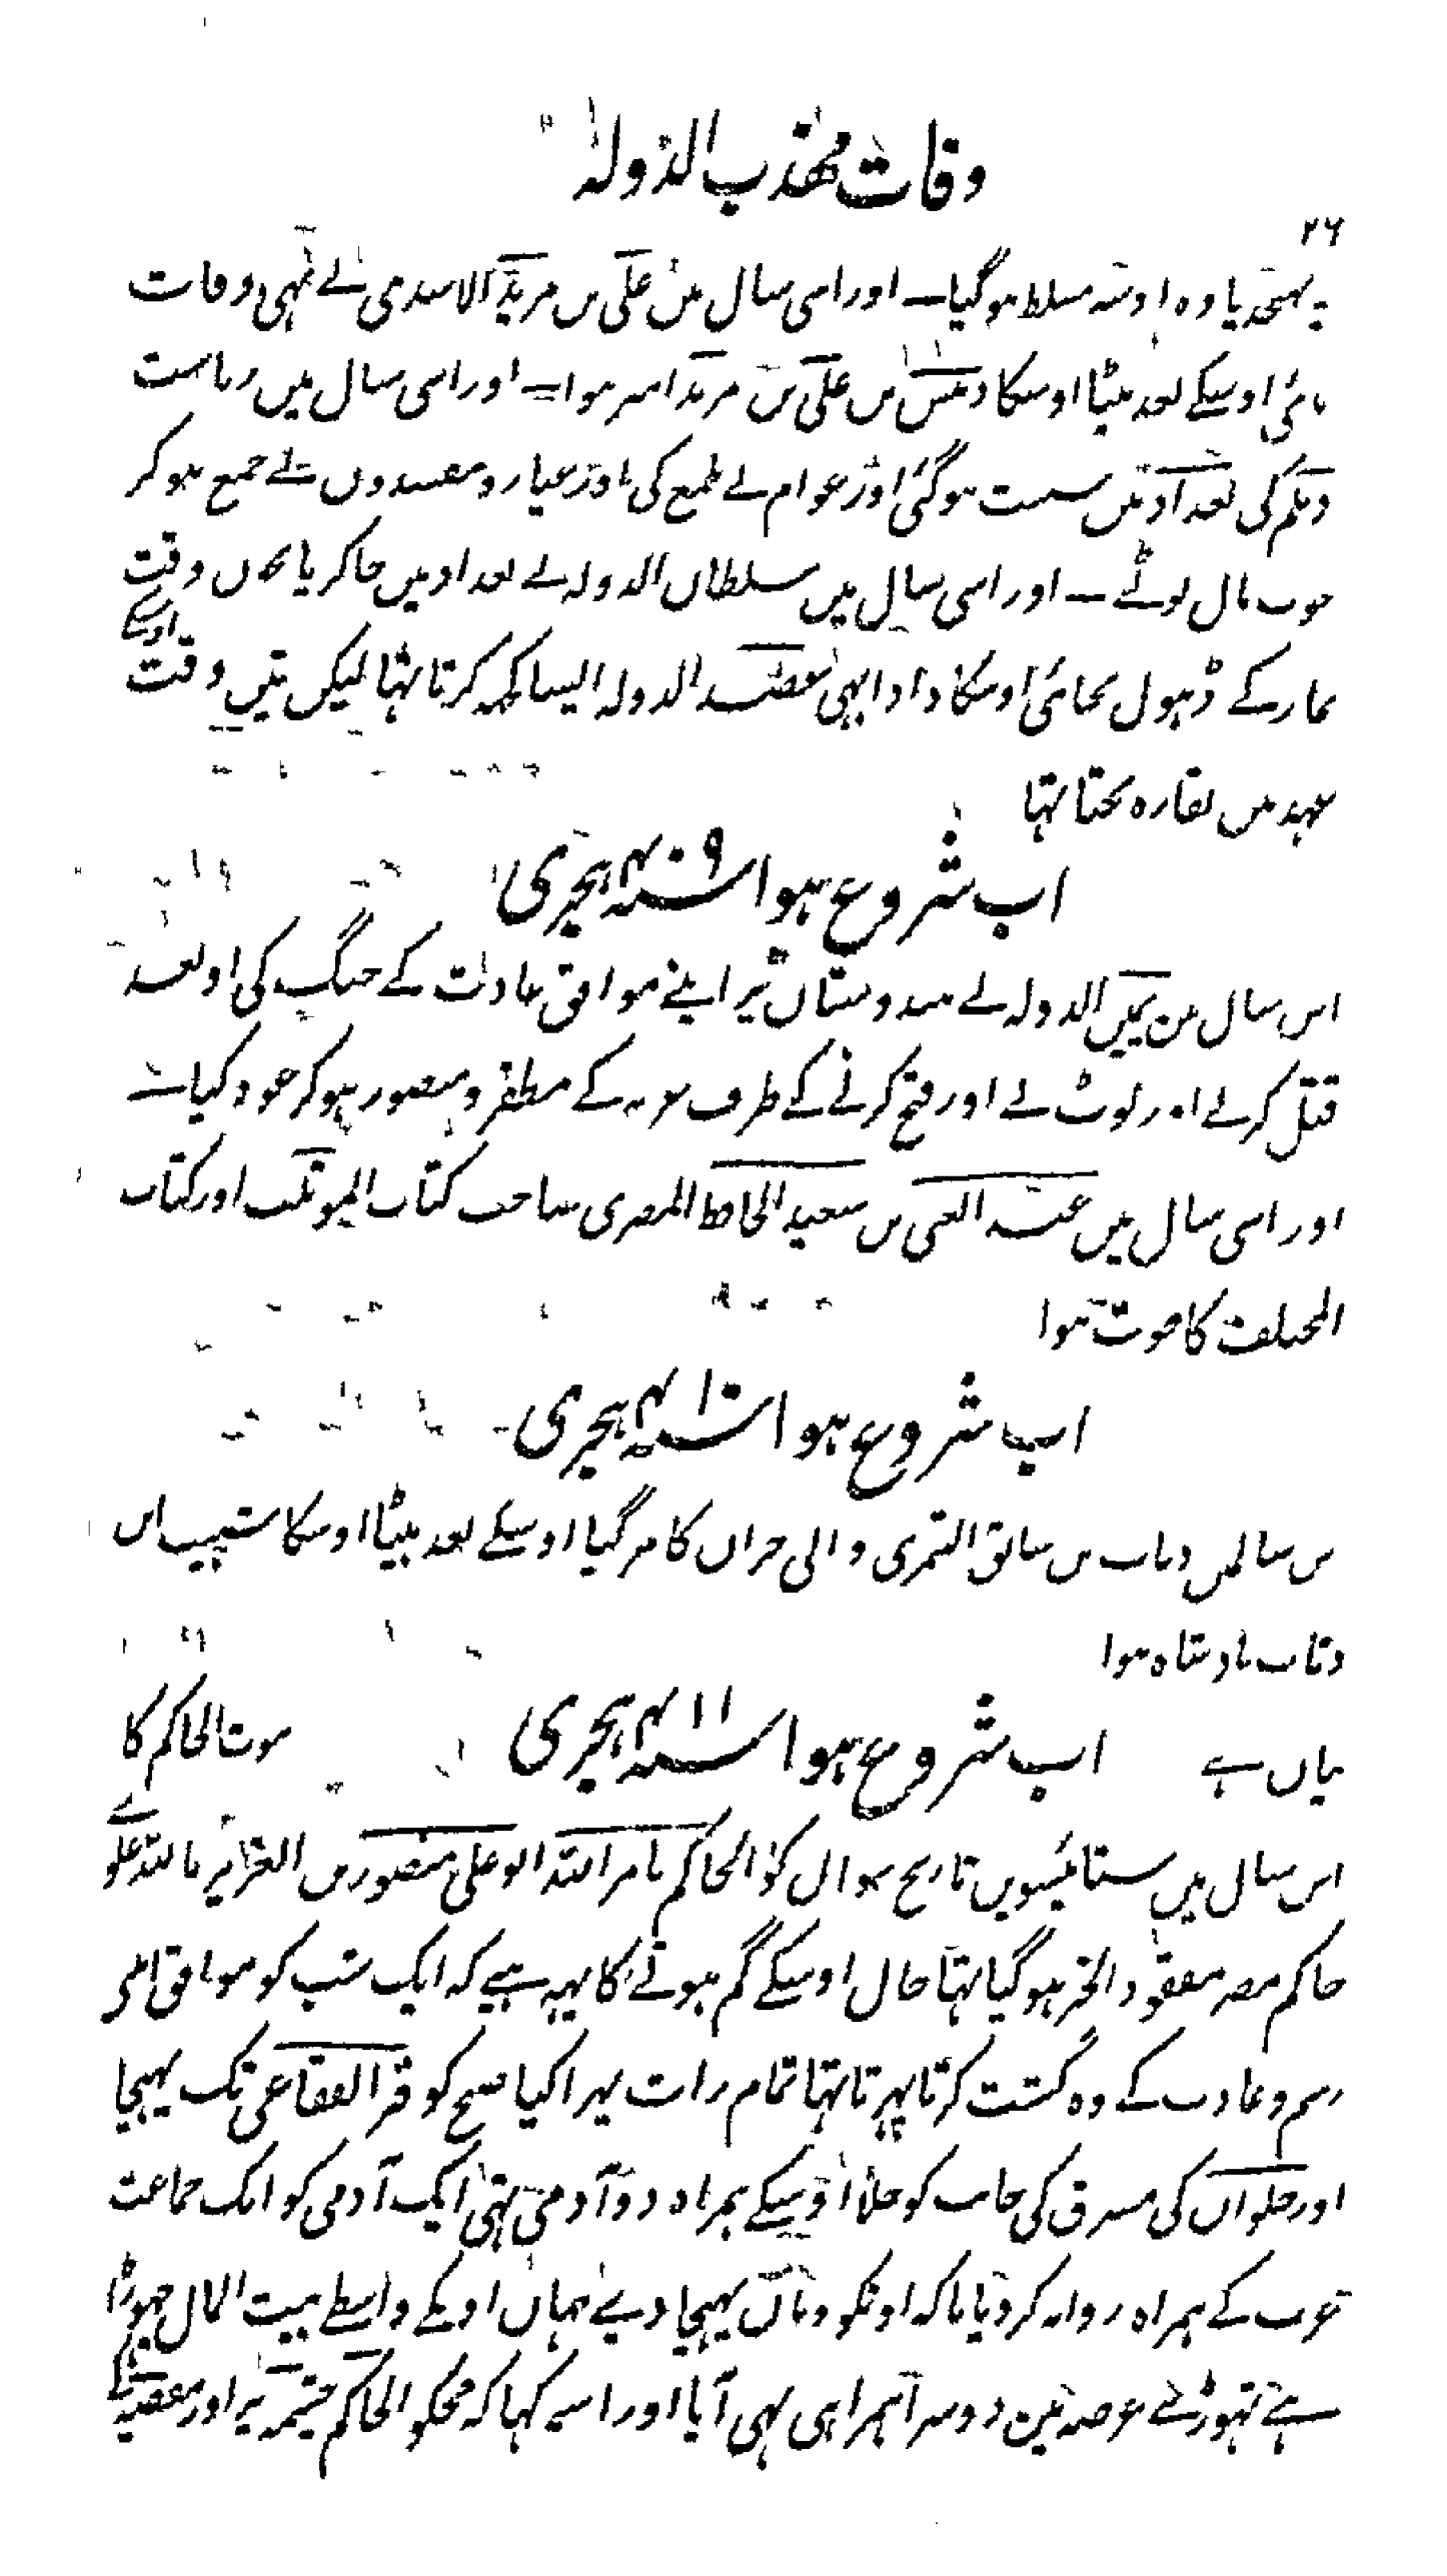 وفات مہذب الدولہ
۲۶
یہ پہنچدیا وہ اوسپہ مسلط ہوگیا۔ اور اسی سال میں علی بن مزید الاسدی نے بہی وفات
پائی اوسیکے بعد بیٹا اوسکا دبیس بن علی بن مزید امیر ہوا۔ اور اسی سال میں ریاست
دیلم کی بغداد میں سست ہوگئی اور عوام نے طمع کی اور عیار و مفسدوں نے جمع ہوکر
خوب مال لوٹے ۔ اور اسی سال میں سلطان الدولہ نے بغداد میں جاکر پانچوں وقت
نماز کے ڈہول بجائی اوسکا دادا بہی عضد الدولہ ایسا کچہ کرتا تہا لیکن تین وقت اوسکے
عہد میں نقارہ بجتا تہا
اب شروع ہوا سنہ ۴۰۹ ہجری
اس سال میں یمین الدولہ نے ہندوستان پر اپنے موافق عادت کے جنگ کی اور بعد
قتل کرنے اور لوٹنے اور فتح کرنے کے طرف غزنہ کے مظفر و منصور ہوکر عود کیا
اور اسی سال میں عبد الغنی بن سعید الحافظ المصری صاحب کتاب الموتلف اور کتاب
المختلف کا فوت ہوا
اب شروع ہوا سنہ ۴۱۰ ہجری
اس سالمیں وثاب بن سابق النمری والی حران کا مرگیا اوسیکے بعد بیٹا اوسکا شبیب ابن
وثاب بادشاہ ہوا
اب شروع ہوا سنہ ۴۱۱ ہجری
موت الحاکم کا
بیان ہے
اس سال میں ستائیسویں تاریخ شوال کو الحاکم بامر اللہ ابو علی منصور بن العزیز باللہ علوی
حاکم مصر مفقود الخبر ہوگیا تہا حال اوسیکے گم ہونے کا یہہ ہے کہ ایک شب کو موافق اپنی
رسم و عادت کے وہ گشت کرتا پہرتا تہا تمام رات پہرا کیا صبح کو قبر الفقاعی تک پہنچا
اور حلوان کی مشرق کی جانب کو چلا اوسیکے ہمراہ دو آدمی تہی ایک آدمی کو ایک جماعت
عرب کے ہمراہ روانہ کردیا تاکہ اونکو وہاں پہنچا دیے جہاں اونکے واسطے بیت المال چہوڑا
ہے تہوڑے عرصہ میں دوسرا ہمراہی بہی آیا اور اسنے کہا کہ مجکو الحاکم چشمہ پر اور